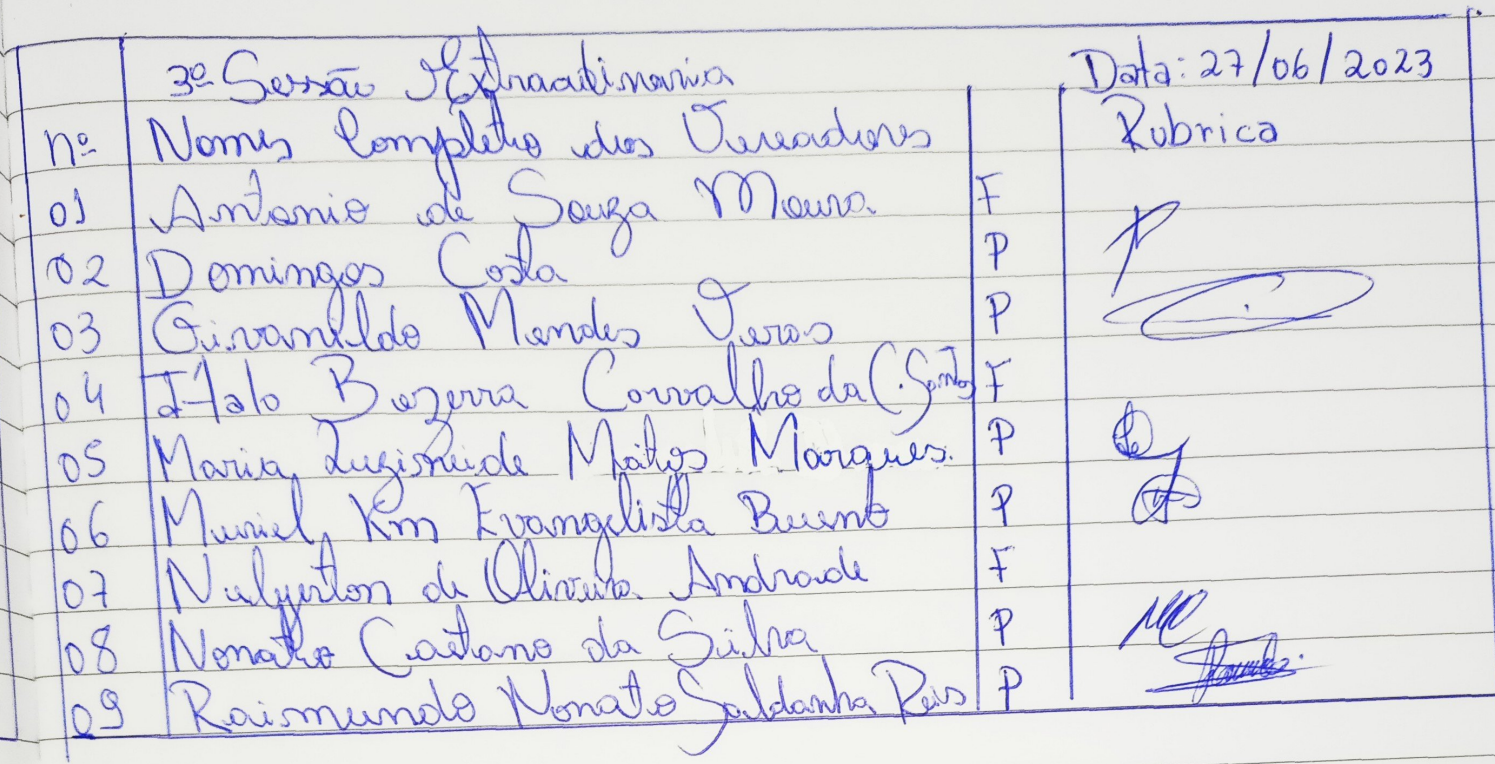 3ª Sessão Extraordinaria Data: 27/06/2023
nº Nomes Completo dos Vereadores Rubrica
01 Antonio de Souza Moura. F
02 Domingos Costa P
03 Givanildo Mendes Veras P
04 Ítalo Bezerra Carvalho da C. Santos F
05 Maria Luzineide Matos Marques. P
06 Muriel Km Evangelista Bueno P
07 de Oliveira Andrade F
08 Nonato Caetano da Silva P
09 Raimundo Nonato Saldanha Reis P